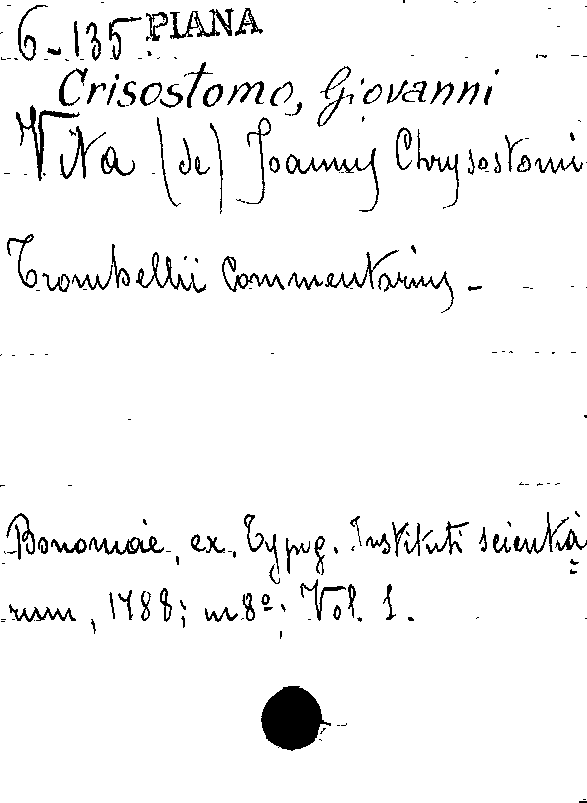 6-135 PIANA
Crisostomo, Giovanni
Vita (de) Joannis Chrysostomi
Trombellii Commentarius -
Bononiae, ex. Typog. Instituti scientia
rum, 1788; in 8º; Vol. 1.